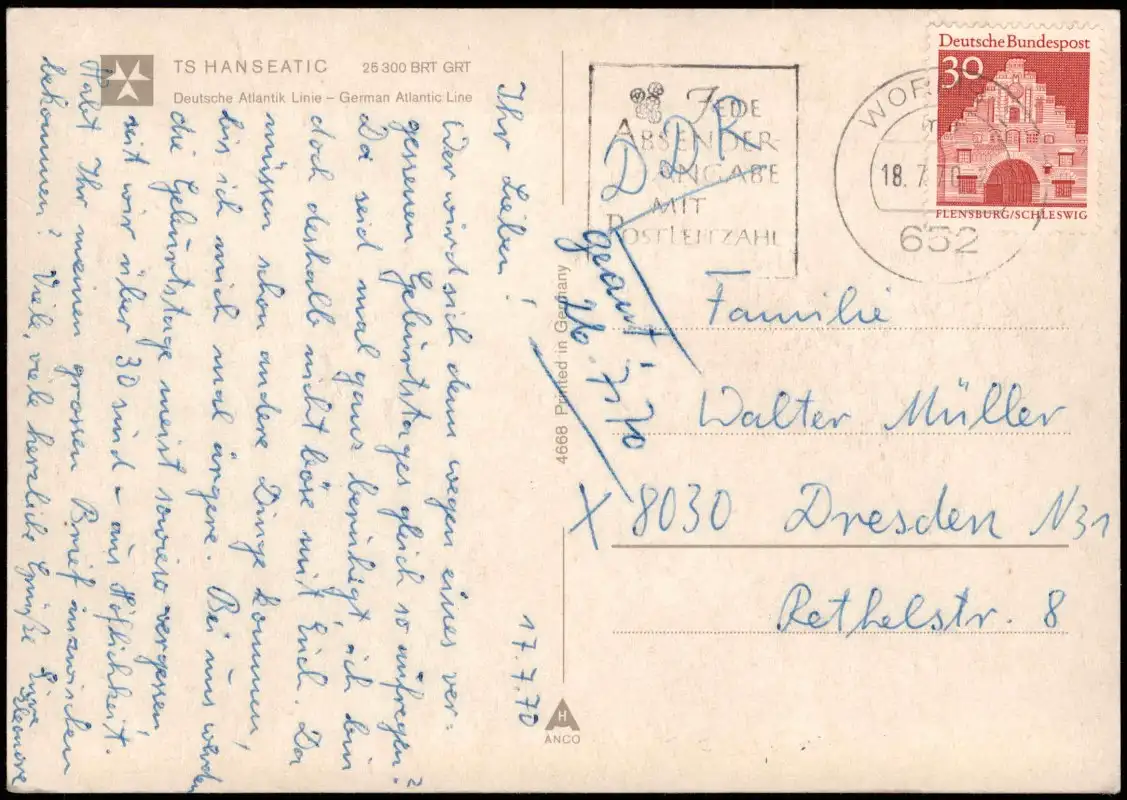 TS HANSEATIC 25300 BRT GRT
Deutsche Atlantik Linie – German Atlantic Line
17.7.70
Ihr Lieben!
Wer wird sich denn wegen eines ver-
gessenen Geburtstages gleich so aufregen?
Da seid mal ganz beruhigt, ich bin
doch deshalb nicht böse mit Euch. Da
müssen schon andere Dinge kommen,
bis ich mich mal ärgere. Bei uns werden
die Geburtstage meist sowieso vergessen,
seit wir über 30 sind – aus Höflichkeit.
Habt Ihr meinen grossen Brief inzwischen
bekommen? Viele, viele herzliche Grüße Eure
Eleonore
4668 Printed in Germany
H
ANCO
JEDE
ABSENDER-
ANGABE
MIT
POSTLEITZAHL
WORMS
18.7.70
652
Deutsche Bundespost
30
FLENSBURG/SCHLESWIG
DDR
geant.
26.7.70
Familie
Walter Müller
X 8030 Dresden N31
Rethelstr. 8